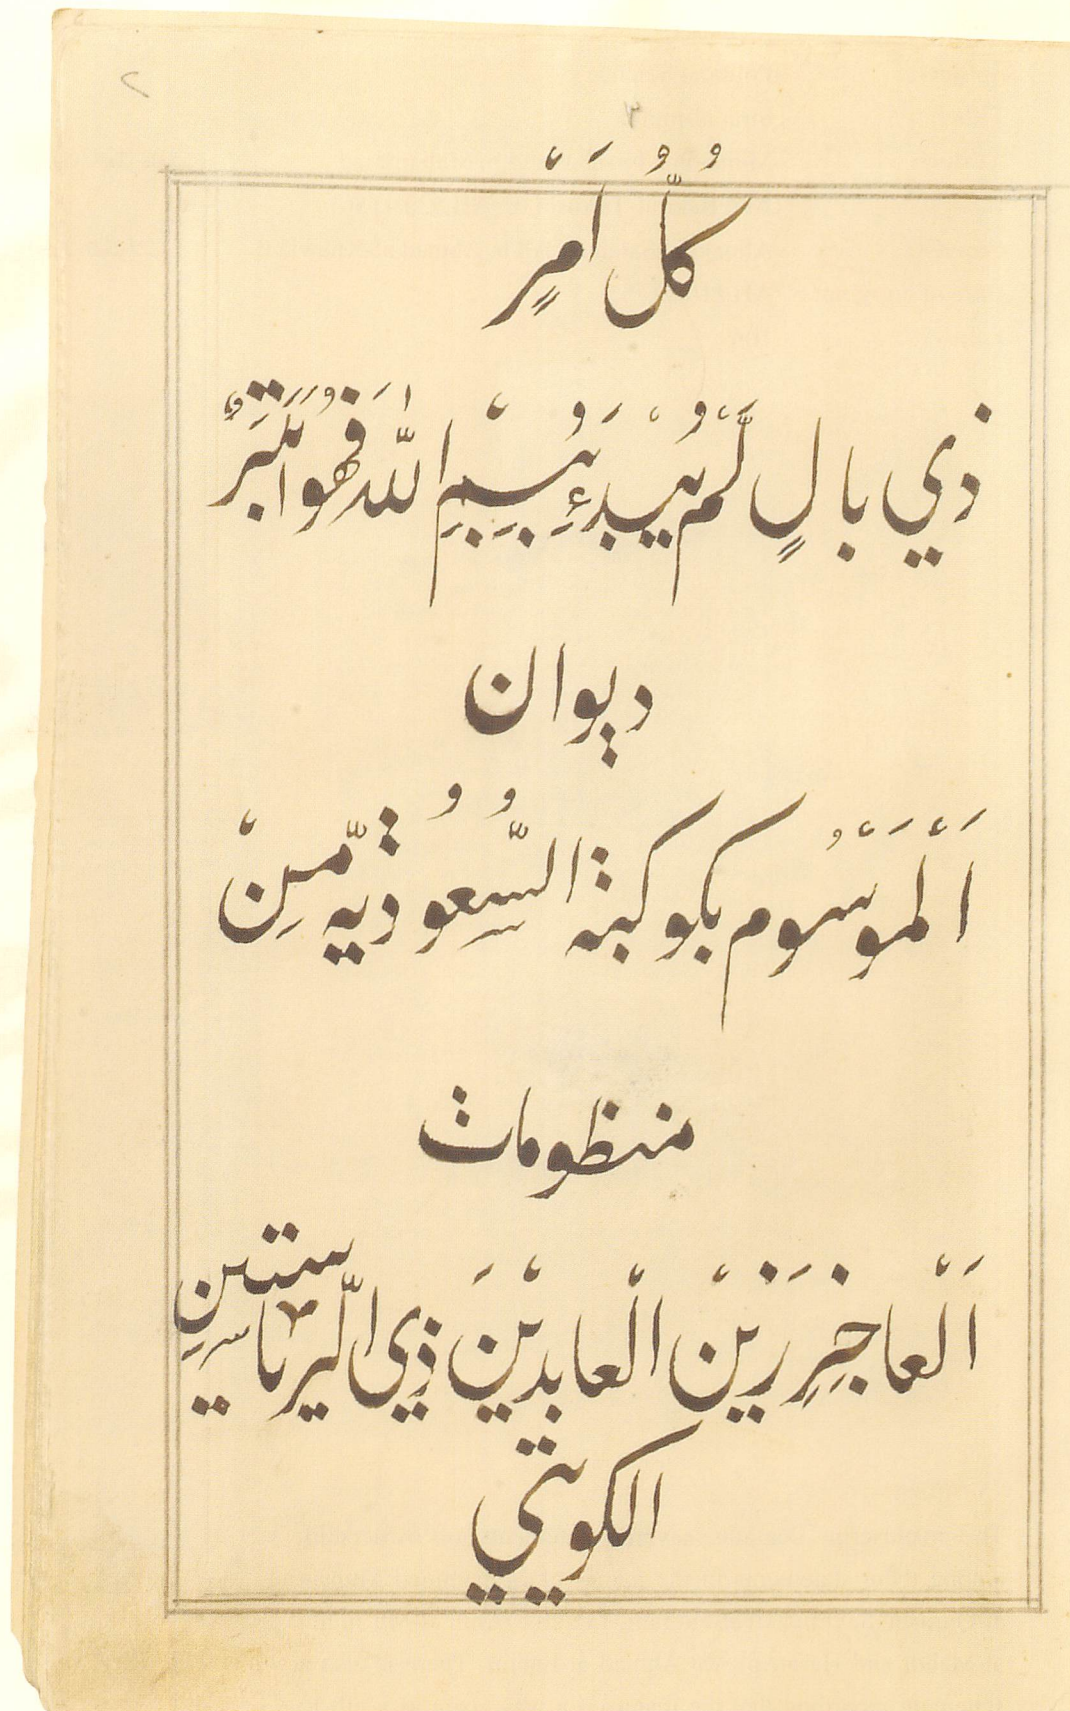 ٢
٣
كُلُّ اَمْرٍ
ذِي بالٍ لَمْ يُبْدَءْ بِسْمِ اللّٰهِ فَهُوَ اَبْتَرٌ
ديوان
اَلْمَوْسُوم بكوكبة السُّعُودية مِّنْ
منظومات
اَلْعاجِز زَيْن الْعابدِيْنَ ذِي
الكويتي